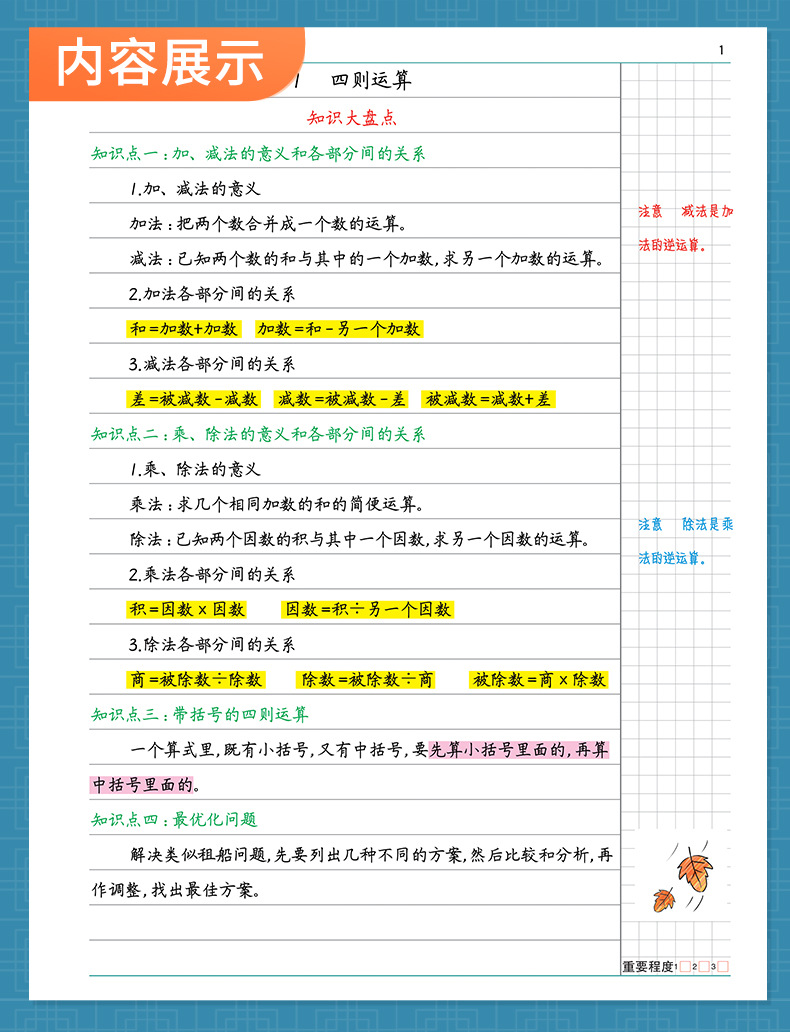 内容展示
1
1 四则运算
知识大盘点
知识点一:加、减法的意义和各部分间的关系
1.加、减法的意义
加法:把两个数合并成一个数的运算。
减法:已知两个数的和与其中的一个加数,求另一个加数的运算。
注意 减法是加
法的逆运算。
2.加法各部分间的关系
和=加数+加数 加数=和-另一个加数
3.减法各部分间的关系
差=被减数-减数 减数=被减数-差 被减数=减数+差
知识点二:乘、除法的意义和各部分间的关系
1.乘、除法的意义
乘法:求几个相同加数的和的简便运算。
除法:已知两个因数的积与其中一个因数,求另一个因数的运算。
注意 除法是乘
法的逆运算。
2.乘法各部分间的关系
积=因数×因数 因数=积÷另一个因数
3.除法各部分间的关系
商=被除数÷除数 除数=被除数÷商 被除数=商×除数
知识点三:带括号的四则运算
一个算式里,既有小括号,又有中括号,要先算小括号里面的,再算
中括号里面的。
知识点四:最优化问题
解决类似租船问题,先要列出几种不同的方案,然后比较和分析,再
作调整,找出最佳方案。
重要程度1□2□3□